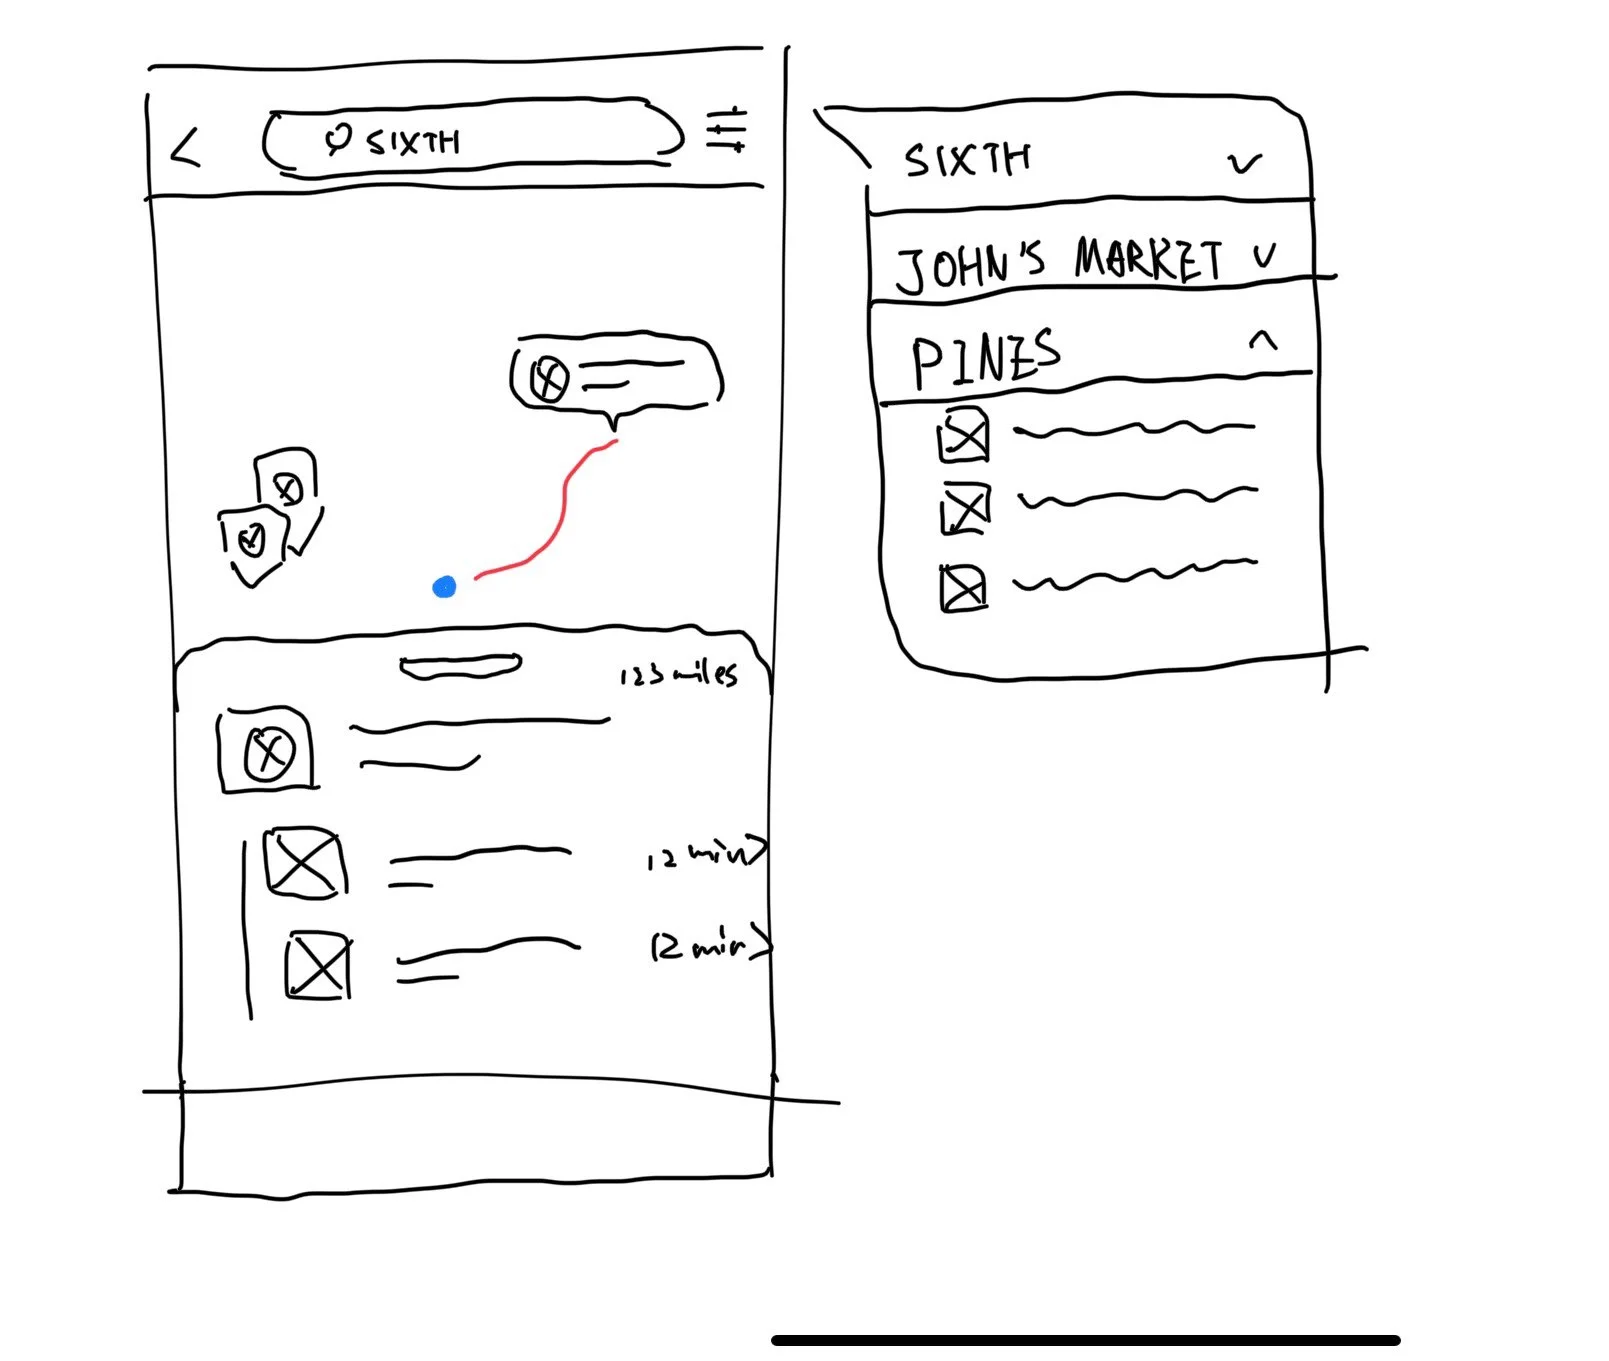 SIXTH
123 miles
12 min
12 min
SIXTH
JOHN'S MARKET
PINES